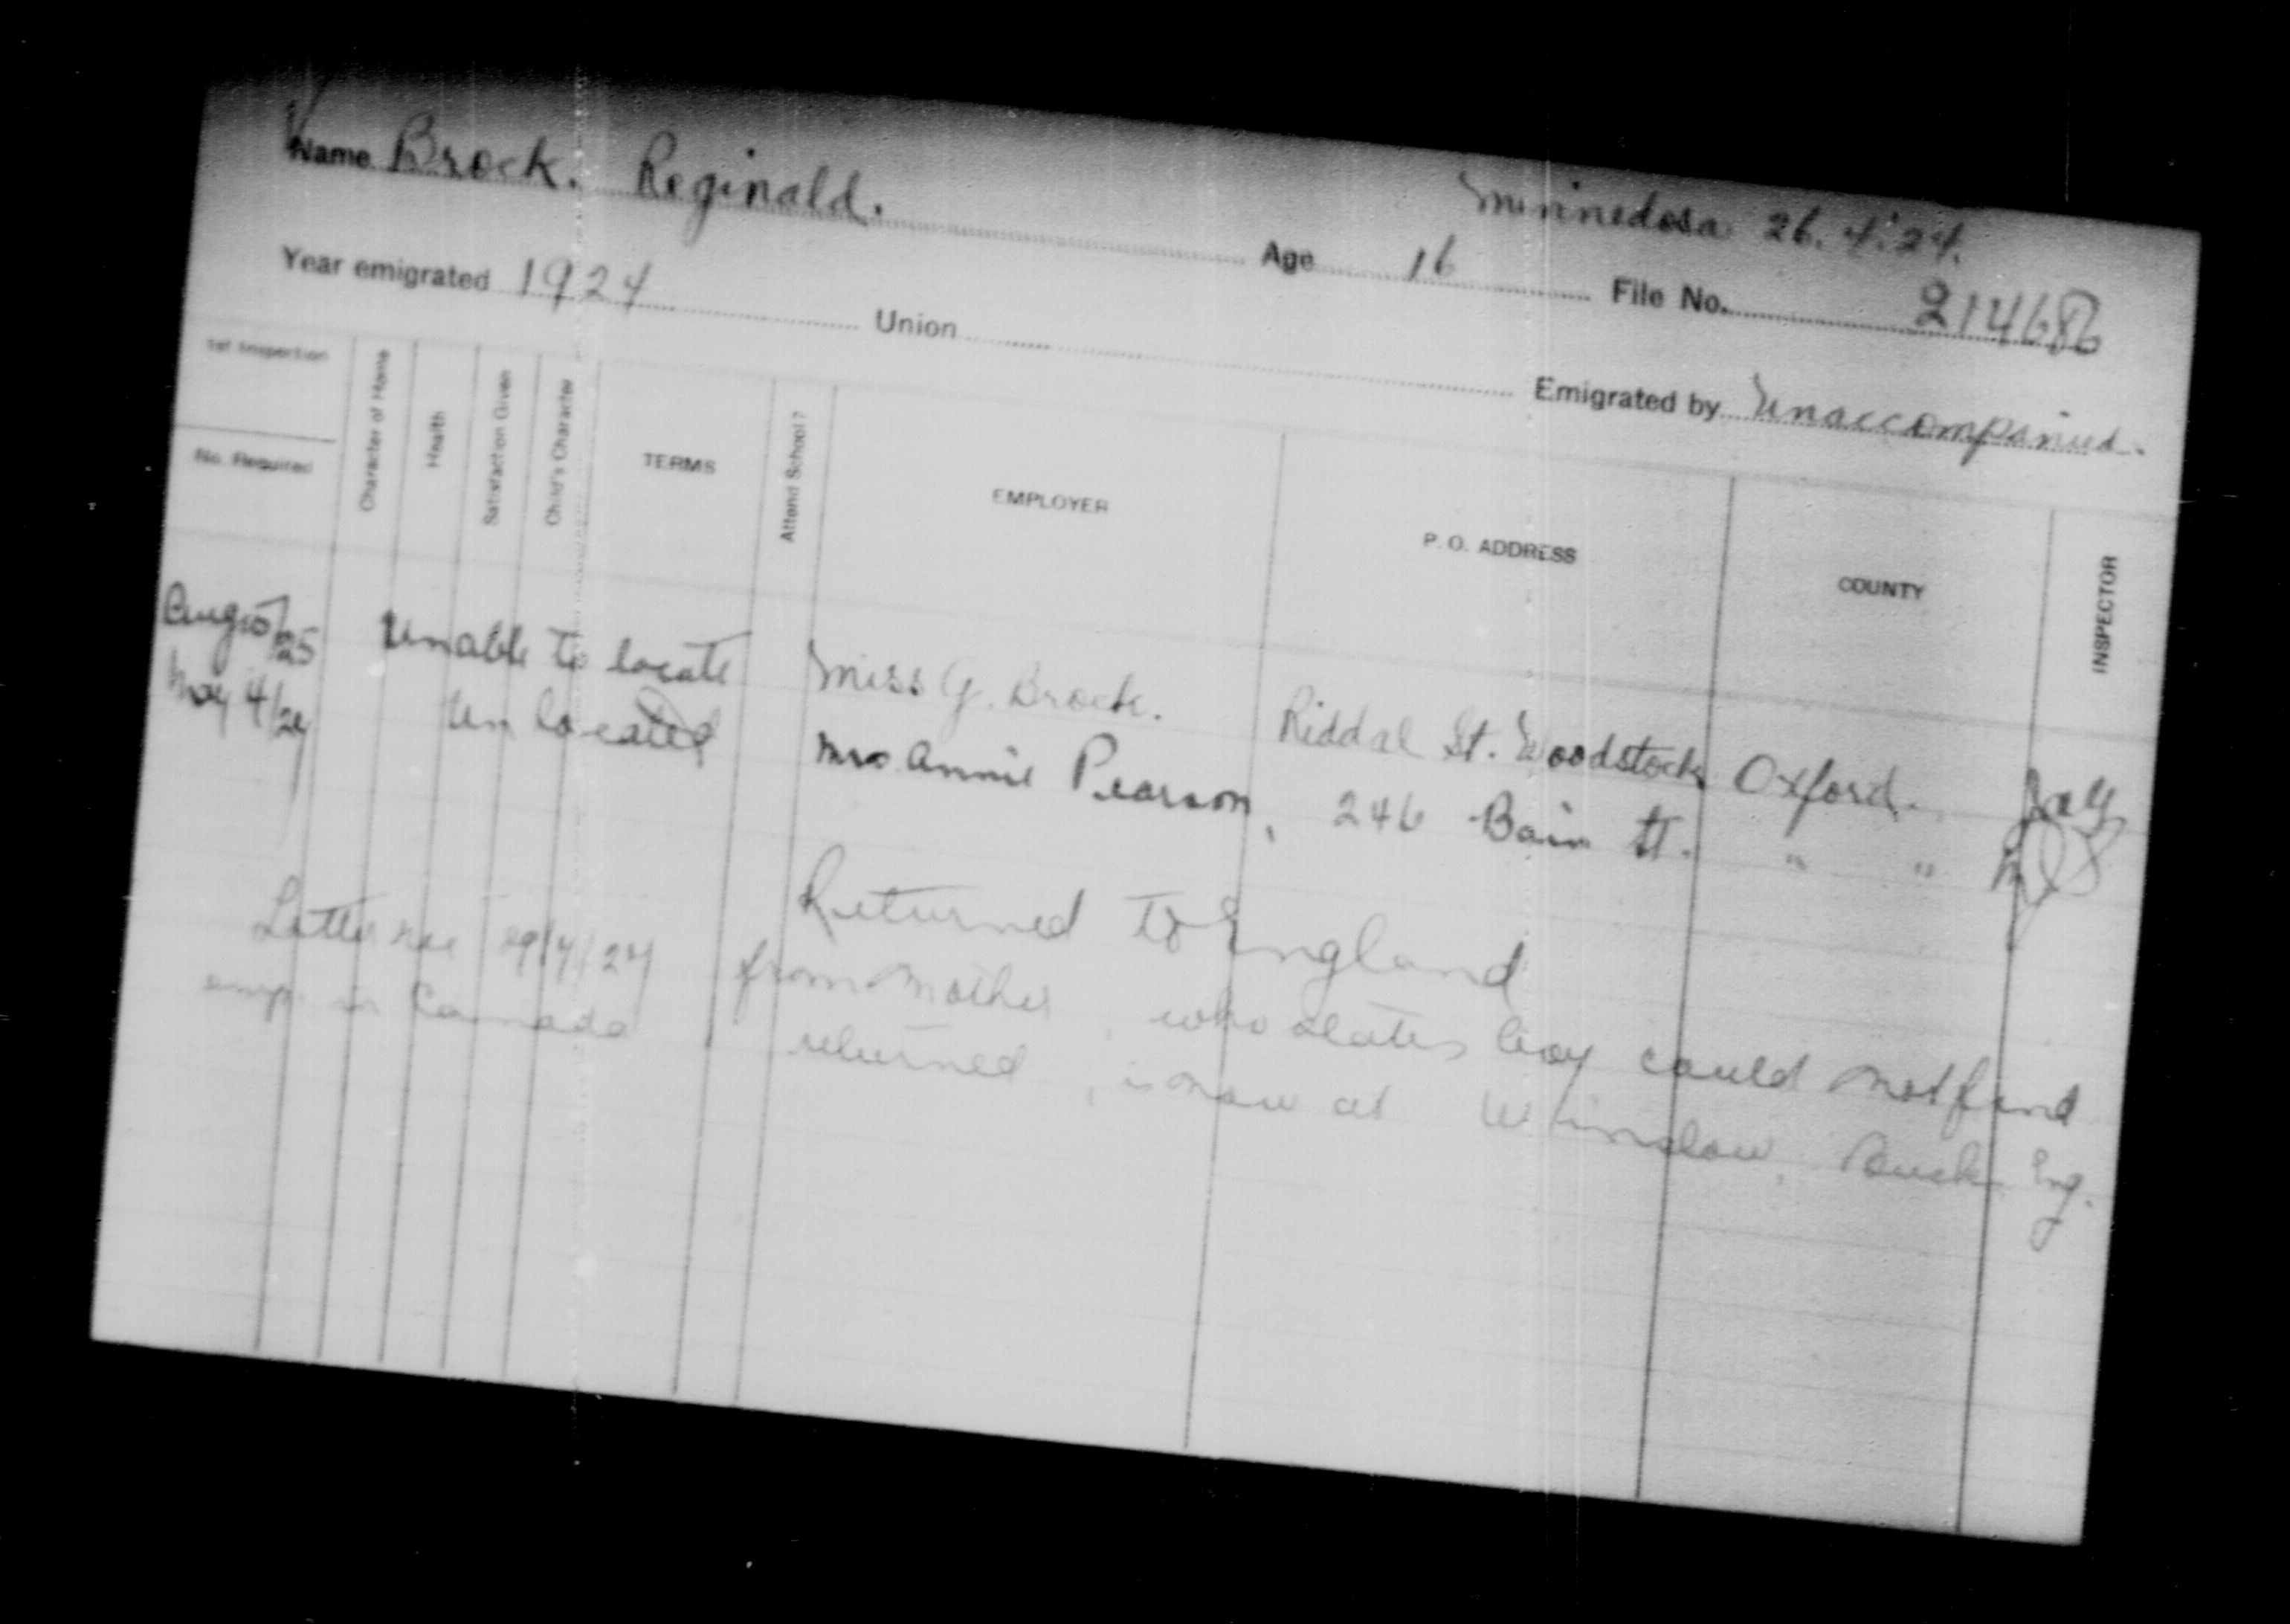 Name Brock. Reginald.
Minnedosa 26.4.24.
Age 16 File No. 214686
Year emigrated 1924 Union Emigrated by Unaccompanied.
1st Inspection
No. Required
Character of Home
Health
Satisfaction Given
Child's Character
TERMS
Attend School?
EMPLOYER
P. O. ADDRESS
COUNTY
INSPECTOR
Unable to locate Miss G. Brock. Riddal St. Woodstock Oxford.
May 4/27 Unlocated Mrs Annie Pearson, 246 Bain St. " "
Returned to England
Letter rec 29/4/27 from mother, who states boy could not find
emp. in Canada returned, is now at Winslow, Bucks Eng.